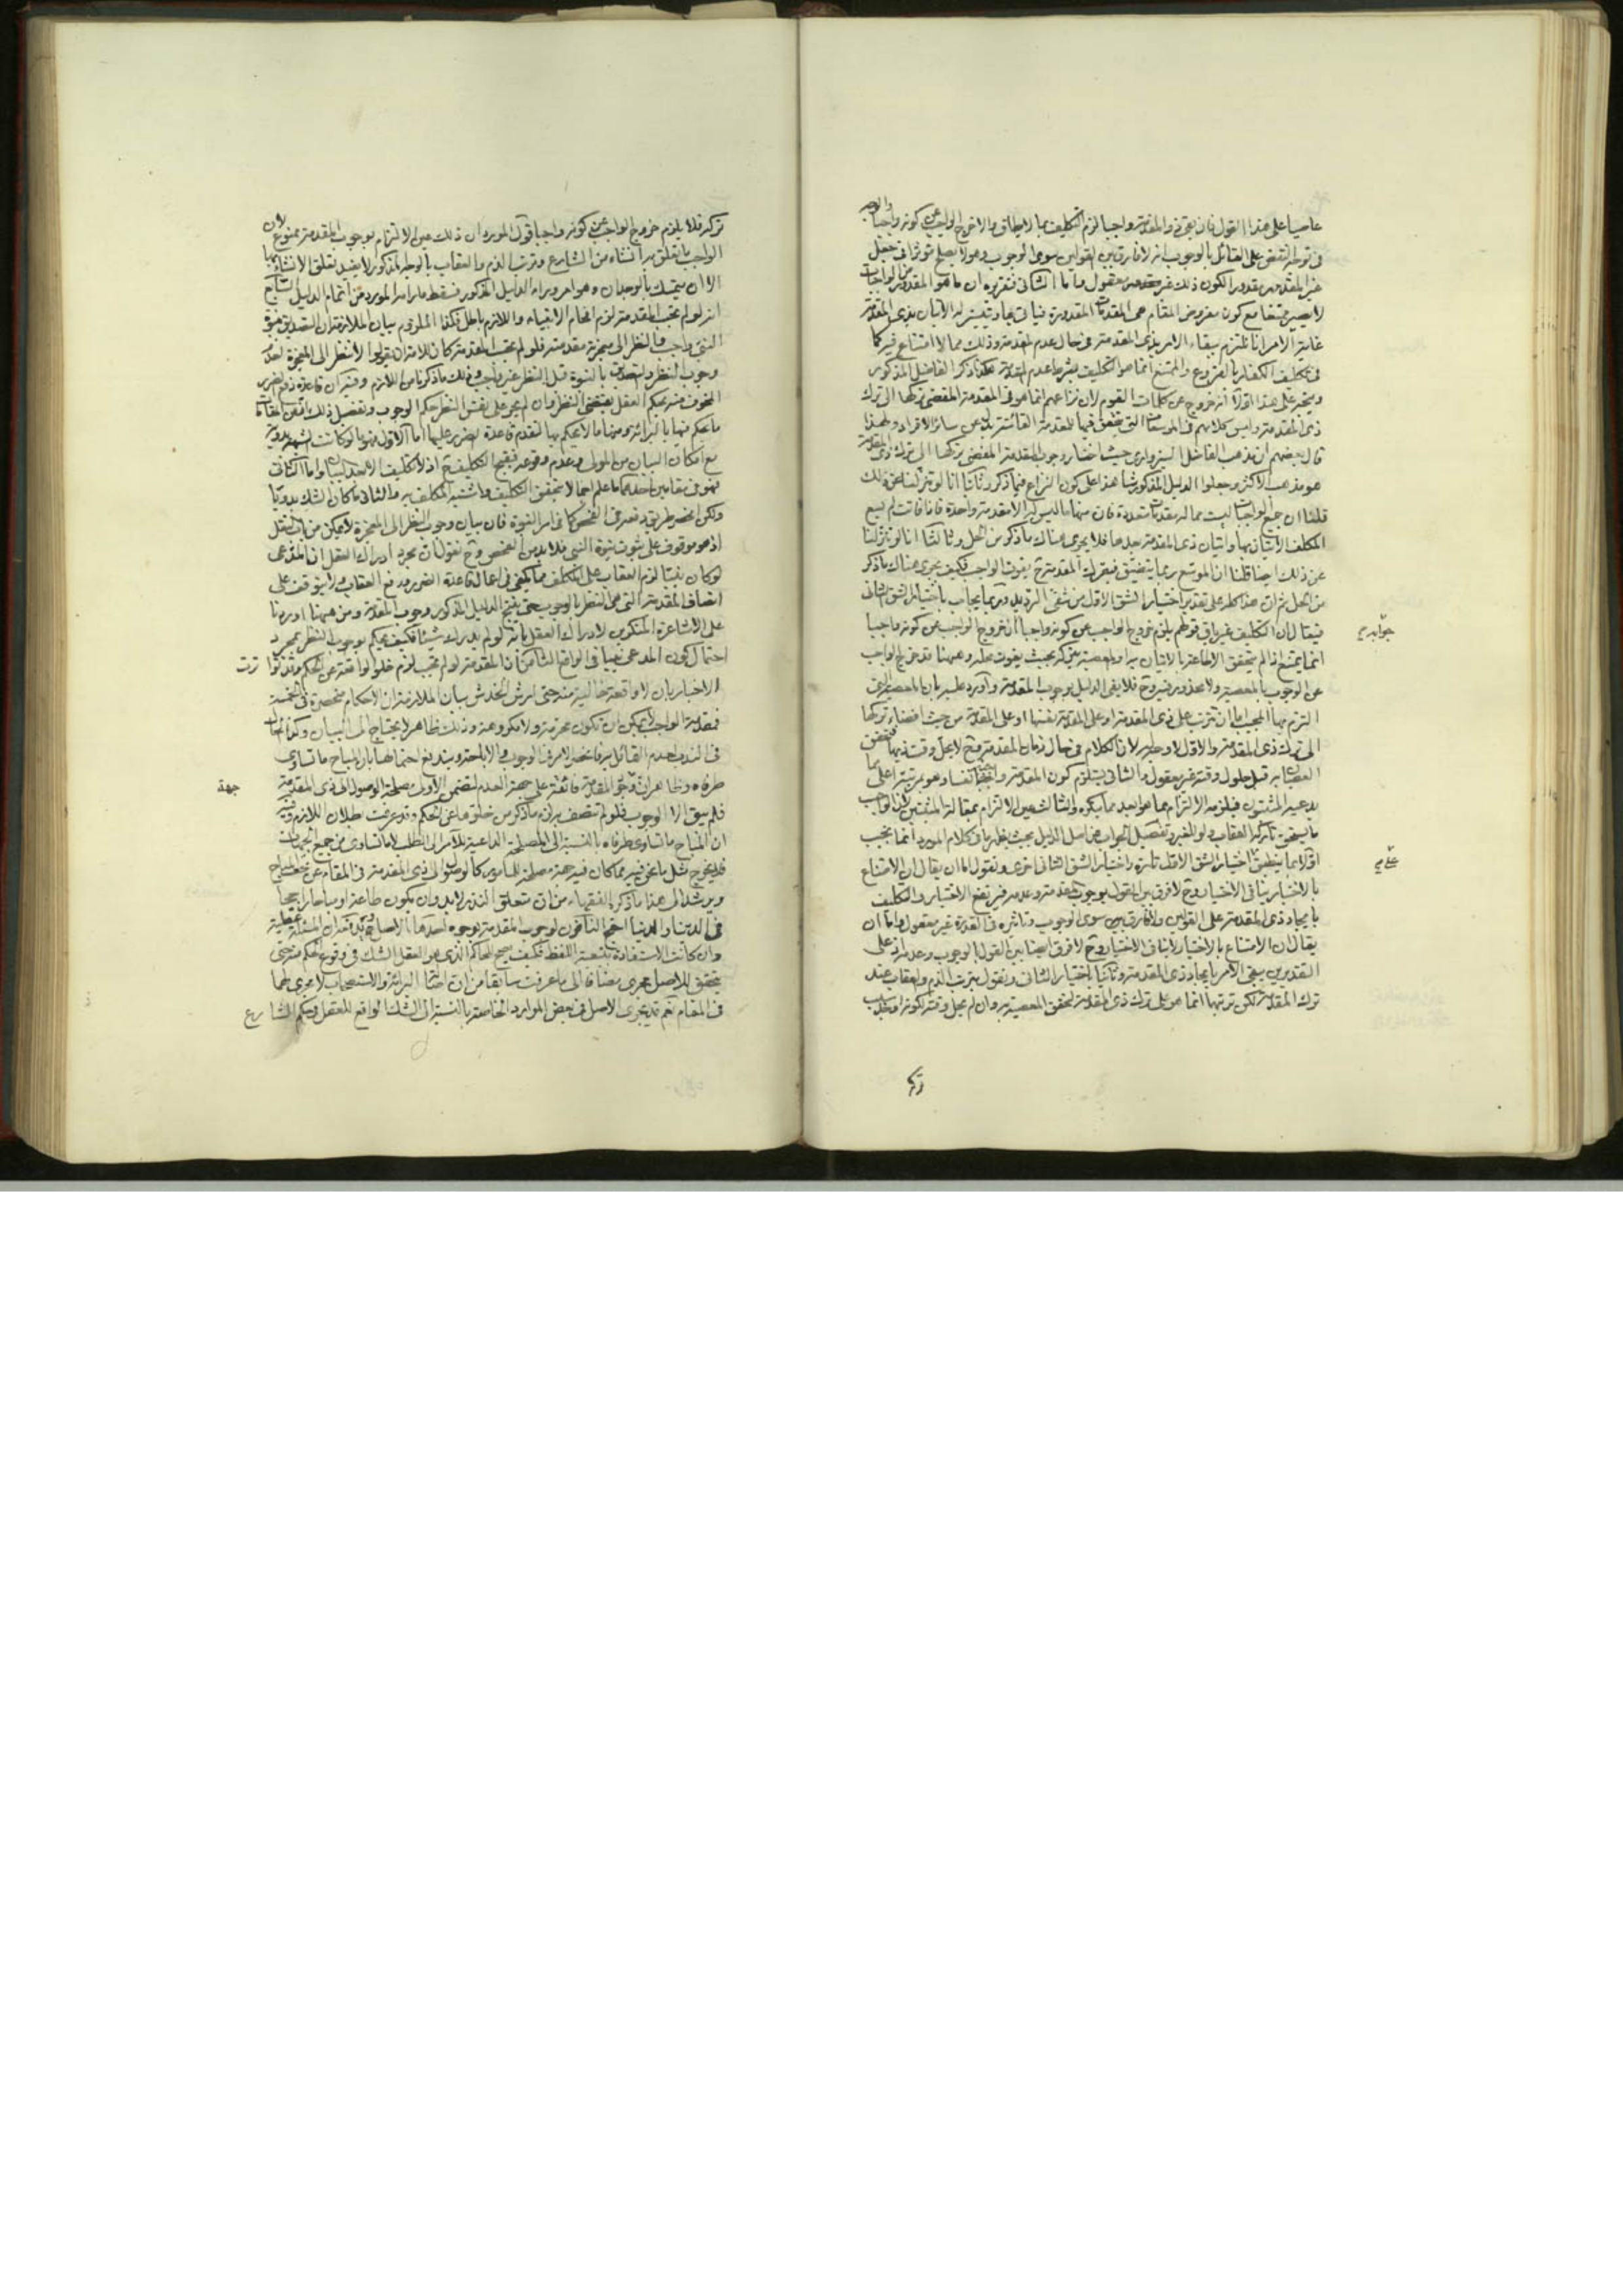 عاصيا على هذا القول فان بقى ذو المقدمة واجبا لزم التكليف بما لا يطاق والا خرج الواجب عن كونه واجبا والوجه
فى توجه النقض على القائل بالوجوب انه لا فارق بين القولين سوى الوجوب وهو لا يصلح مؤثرا فى جعل
غير المقدور مقدورا لكون ذلك غير معقول واما الثانى فتقريره ان ما هو المقدور من الواجبات
لا يصير ممتنعا مع كون مفروض المقام هى المقدمات المقدورة
غاية الامر انا نلتزم ببقاء الامر بذى المقدمة فى حال عدم المقدمة وذلك مما لا امتناع فيه كما
فى تكليف الكفار بالفروع والممتنع انما هو التكليف بشرط عدم المقدمة هكذا ذكر الفاضل المذكور
ويتجه على هذا اولا انه خروج عن كلمات القوم لان نزاعهم انما هو فى المقدمة المفضى تركها الى ترك
ذى المقدمة وليس كلامهم فى الموسعات التى
قال بعضهم ان مذهب الفاضل السبزوارى حيث اختار وجوب المقدمة المفضى تركها الى ترك ذى المقدمة
هو مذهب الاكثر وجعلوا الدليل المذكور شاهدا على كون النزاع فيما ذكر وثانيا انا لو تنزلنا عن ذلك
قلنا ان جميع الواجبات ليست مما له مقدمات متعددة فان منها ما ليس له الا مقدمة واحدة فاذا فاتت لم يسع
المكلف الاتيان بها واتيان ذى المقدمة بعدها فلا يجرى هناك ما ذكر من الحل وثالثا انا لو تنزلنا
عن ذلك ايضا قلنا ان الموسع ربما يتضيق فبترك المقدمة ح يفوت الواجب فكيف يجرى هناك ما ذكر
من الحل ثم ان هذا كله على تقدير اختيار الشق الاول من شقى الترديد وربما يجاب باختيار الشق الثانى
فيقال ان التكليف غير باق قولهم يلزم خروج الواجب عن كونه واجبا قلنا ان خروج الواجب عن كونه واجبا
انما يمتنع اذا لم يتحقق الاطاعة بالاتيان به او المعصية بتركه بحيث يفوت محله وهيهنا قد خرج الواجب
عن الوجوب بالمعصية ولا محذور فيه وح فلا يفى الدليل بوجوب المقدمة واورد عليه بان المعصية التى
التزم بها المجيب اما ان تترتب على ذى المقدمة او على المقدمة نفسها او على المقدمة من حيث افضاء تركها
الى ترك ذى المقدمة والاول لا وجه له لان الكلام فى حال زمان المقدمة وح لا يحل وقت ذيها فتحقق
العصيان به قبل حلول وقته غير معقول والثانى يستلزم كون المقدمة واجبا نفسيا وهو مرتبة اعلى مما
يدعيه المثبتون فيلزمه الالتزام بما هو ابعد مما ينكره والثالث عين الالتزام بمقالة المثبتين لان الواجب
ما يستحق تاركه العقاب ولو للغير وتفصيل الجواب عن اصل الدليل بحيث يظهر ما فى كلام المورد انما يجب
اولا بما ينطبق اختيار الشق الاول تارة واختيار الشق الثانى اخرى ونقول اما ان يقال ان الامتناع
بالاختيار ينافى الاختيار وح لا فرق بين القول بوجوب المقدمة وعدمه فيرتفع الاختيار والتكليف
بايجاد ذى المقدمة على القولين ولا فارق بين سوى الوجوب وتاثيره فى القدرة غير معقول واما ان
يقال ان الامتناع بالاختيار لا ينافى الاختيار وح لا فرق ايضا بين القول بالوجوب وعدمه اذ على
التقديرين يبقى الامر بايجاد ذى المقدمة وثانيا باختيار الثانى ونقول بترتب الذم والعقاب عند
ترك المقدمة لكن ترتبهما انما هو على ترك ذى المقدمة لتحقق المعصية به وان لم يحل وقته لكونه
جوابه م
تركه
تركه فلا يلزم خروج الواجب عن كونه واجبا قول المورد ان ذلك عين الالتزام بوجوب المقدمة ممنوع لان
الواجب ما يتعلق به انشاء من الشارع وترتب الذم والعقاب بالوجه المذكور لا يفيد تعلق الانشاء بها
الا ان يتمسك بالوجدان وهو امر وراء الدليل المذكور فسقط ما رامه المورد من اتمام الدليل السابع
انه لو لم تجب المقدمة لزم افحام الانبياء واللازم باطل فكذا الملزوم بيان الملازمة ان التصديق بنبوة
النبى واجب والنظر الى معجزته مقدمته فلو لم تجب المقدمة كان للامة ان يقولوا لا ننظر الى المعجزة لعدم
وجوب النظر والتصديق بالنبوة قبل النظر غير واجب وذلك ما ذكرنا من اللازم وفيه ان قاعدة دفع الضرر
المخوف منه بحكم العقل يقتضى النظر وان لم يجر على نفس النظر حكم الوجوب وتفصيل ذلك
ما يحكم فيها بالبرائة ومنها ما لا يحكم بها لتقدم قاعدة الضرر عليها اما الاول فهو ما لو كانت الشبهة بدوية
مع امكان البيان من المولى وعدم وقوعه فيقبح التكليف ح اذ لا تكليف الا بعد البيان واما الثانى
فهو فى مقامين احدهما ما علم اجمالا بتحقق التكليف واشتبه المكلف به والثانى ما كان الشك بدويا
ولكن انحصر طريق دفعه فى الفحص كما فى امر النبوة فان بيان وجوب النظر الى المعجزة لا يمكن من باب النقل
اذ هو موقوف على ثبوت نبوة النبى فلا بد من الفحص وح نقول ان مجرد ادراك العقل ان المدعى
لو كان نبيا لزم العقاب على المكلف مما يكفى فى اعمال قاعدة الضرر ودفع العقاب ولا يتوقف على
اتصاف المقدمة التى هى النظر بالوجوب حتى ينتج الدليل المذكور وجوب المقدمة ومن هيهنا اوردنا
على الاشاعرة المنكرين لادراك العقل بانه لو لم يدرك شيئا فكيف يحكم بوجوب النظر بمجرد
احتمال كون المدعى نبيا فى الواقع الثامن ان المقدمة لو لم تجب لزم خلو الواقعة عن الحكم وقد تواترت
الاخبار بان لا واقعة خالية منه حتى ارش الخدش بيان الملازمة ان الاحكام منحصرة فى الخمسة
فمقدمة الواجب لا يمكن ان تكون محرمة ولا مكروهة وذلك ظاهر لا يحتاج الى البيان وكذا الحال
فى الندب لعدم القائل به فانحصر الامر فى الوجوب والاباحة ويندفع احتمالها بان المباح ما تساوى
طرفاه وظاهر ان وجود المقدمة فائقة على جهة العدم لتضمن الاول مصلحة الوصول الى ذى المقدمة
فلم يبق الا الوجوب فلو لم تتصف به لزم ما ذكر من خلوها عن الحكم وقد عرفت بطلان اللازم وفيه
ان المباح ما تساوى طرفاه بالنسبة الى المصلحة الداعية للآمر الى الطلب لا ما تساوى من جميع الجهات
فلا يخرج مثل ما نحن فيه مما كان فيه جهة مصلحة للمامور كالوصول الى ذى المقدمة فى المقام عن المباح
ويرشد الى هذا ما ذكره الفقهاء من ان متعلق النذر لا بد وان يكون طاعة او مباحا راجحا
فى الدين او الدنيا احتج النافون لوجوب المقدمة بوجوه احدها الاصل وفيه ان المسئلة عقلية
وان كانت الاستفادة بتبعية اللفظ فكيف يصح للحاكم الذى هو العقل الشك فى وقوع الحكم منه حتى
يتحقق للاصل مجرى مضافا الى ما عرفت سابقا من ان اصالة البرائة والاستصحاب لا مجرى لهما
فى المقام نعم قد يجرى الاصل فى بعض الموارد الخاصة بالنسبة الى الشك الواقع للعقل وحكم الشارع
جهة